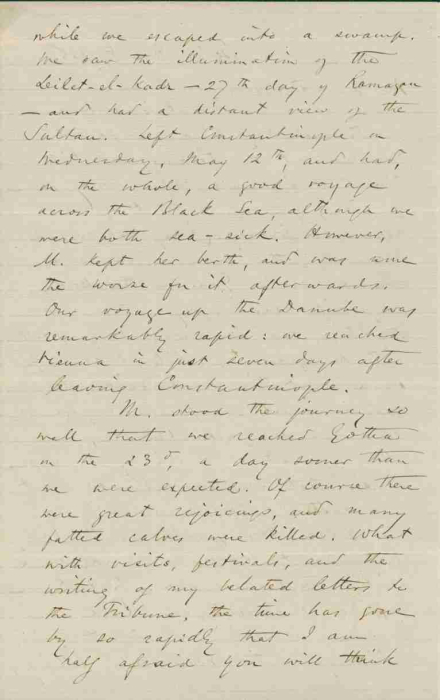 while we escaped into a swamp.
We saw the illumination of the
Leilet-el-Kadr — 27th day of Ramazan
— and had a distant view of the
Sultan. Left Constantinople on
Wednesday, May 12th, and had,
on the whole, a good voyage
across the Black Sea, although we
were both sea-sick. However,
M. kept her berth, and was none
the worse for it afterwards.
Our voyage up the Danube was
remarkably rapid: we reached
Vienna in just seven days after
leaving Constantinople.
M. stood the journey so
well that we reached Gotha
on the 23d, a day sooner than
we were expected. Of course there
were great rejoicings, and many
fatted calves were killed. What
with visits, festivals, and the
writing of my belated letters to
the Tribune, the time has gone
by so rapidly that I am
half afraid you will think